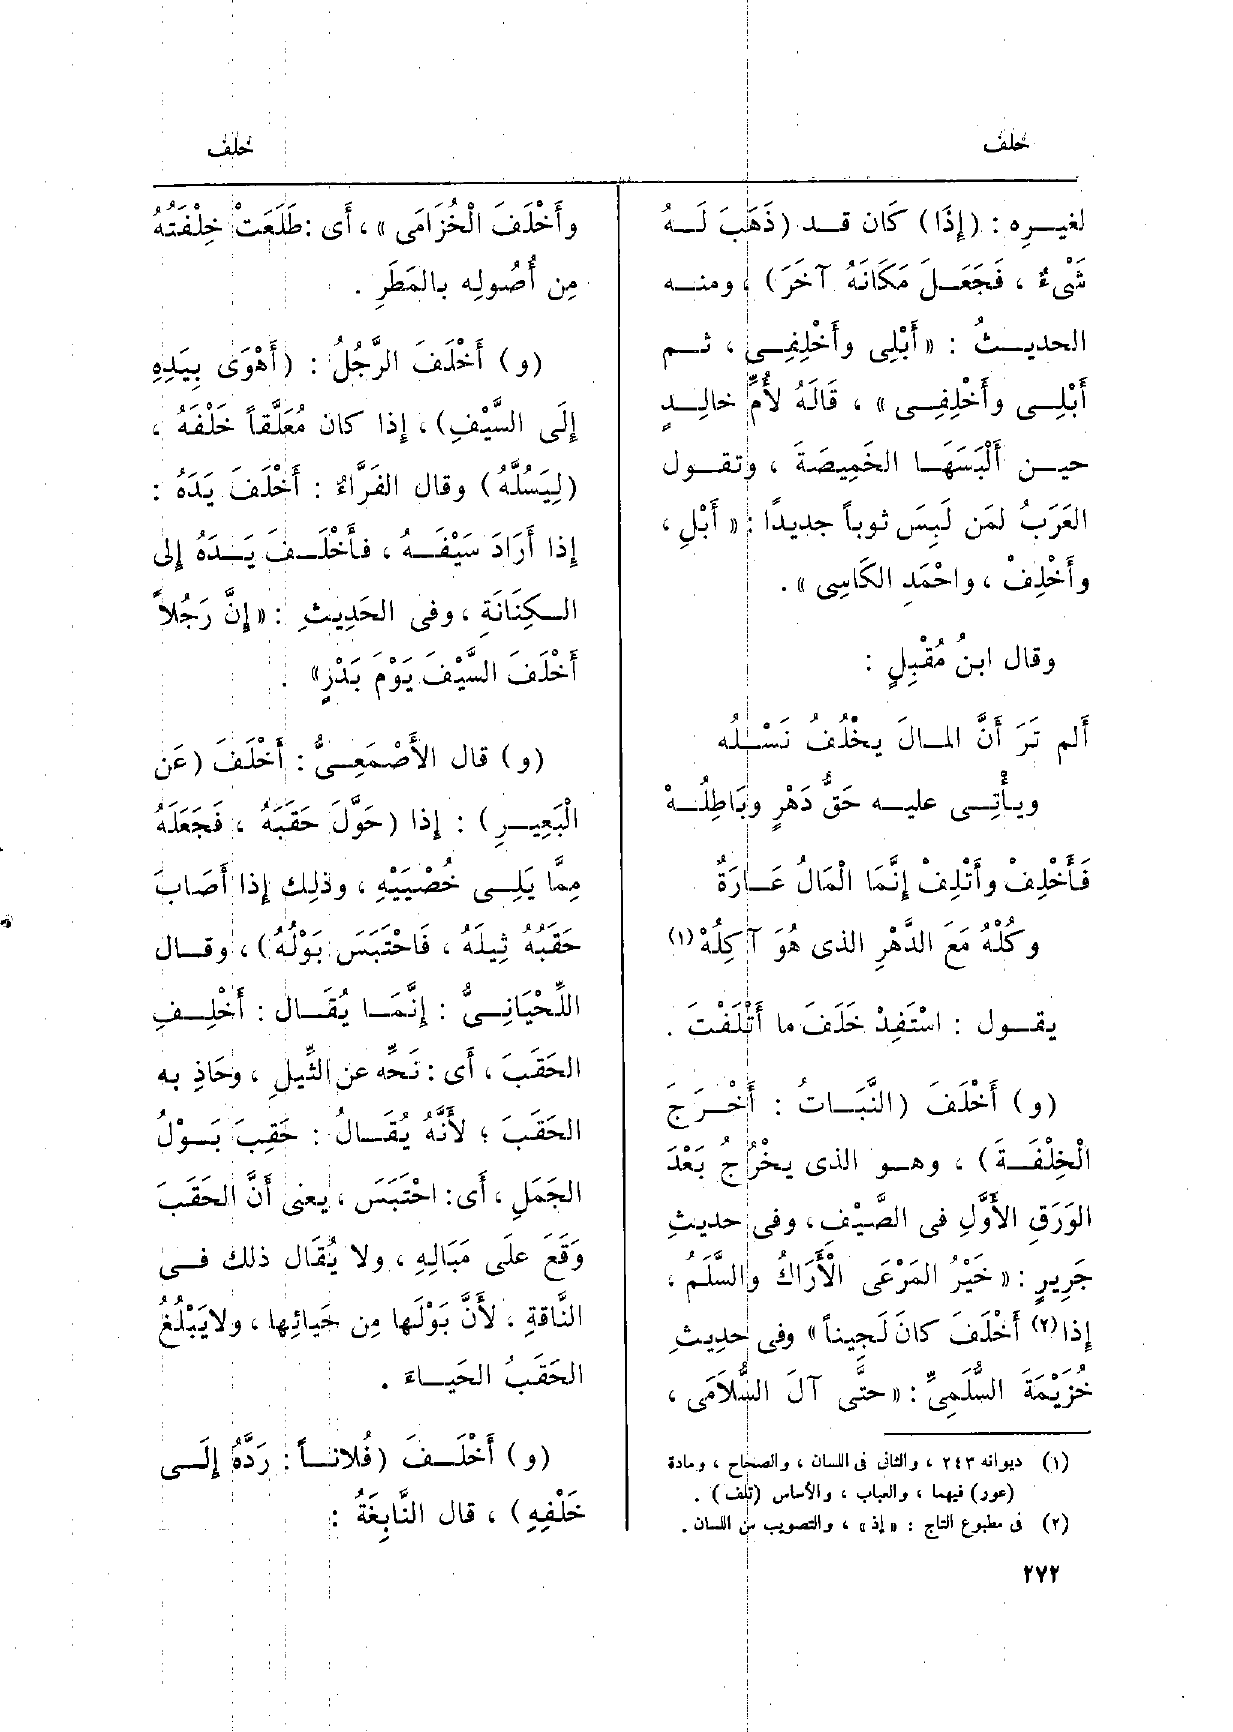 خلف
خلف
لغيـره : (إذَا) كَان قـد (ذَهَبَ لَـهُ
شَىْءٌ ، فَجَعَـلَ مَكَانَهُ آخَرَ) ، ومنـه
الحديـثُ : «أَبْلِى وأَخْلِفِـى ، ثـم
أَبْلِـى وأَخْلِفِـى » ، قَالَهُ لأُمِّ خالِـدٍ
حيـن أَلْبَسَهَـا الخَمِيصَةَ ، وتقـول
العَرَبُ لمَن لَبِسَ ثوباً جديدًا : « أَبْلِ ،
وأَخْلِفْ ، واحْمَدِ الكَاسِى » .
وقال ابنُ مُقْبِلٍ :
ألم تَرَ أَنَّ المـالَ يخْلُفُ نَسْـلُه
ويـأْتِـى عليـه حَقُّ دَهْرٍ وبَاطِلُـهْ
فَأَخْلِفْ وأَتْلِفْ إِنَّمَا الْمَالُ عَـارَةٌ
وكُلْهُ مَعَ الدَّهْرِ الذى هُوَ آكِلُهْ (١)
يقـول : اسْتَفِدْ خَلَفَ ما أَتْلَفْتَ .
(و) أَخْلَفَ (النَّبَـاتُ : أَخْـرَجَ
الْخِلْفَـةَ) ، وهـو الذى يخْرُجُ بَعْدَ
الوَرَقِ الأَوَّلِ فى الصَّيْفِ ، وفى حديثِ
جَرِيرٍ : « خَيْرُ المَرْعَى الْأَرَاكُ والسَّلَمُ ،
إذا (٢) أَخْلَفَ كانَ لَجِيناً » وفى حديثِ
خُزَيْمَةَ السُّلَمِىِّ : « حتَّى آلَ السُّلَامَى ،
(١) ديوانه ٢٤٣ ، والثانى فى اللسان ، والصحاح ، ومادة
(عور) فيهما ، والعباب ، والأساس (تلف) .
(٢) فى مطبوع التاج : « إذ » ، والتصويب من اللسان .
٢٧٢
وأَخْلَفَ الْخُزَامَى » ، أَى : طَلَعَتْ خِلْفَتُهُ
مِن أُصُولِه بالمَطَرِ .
(و) أَخْلَفَ الرَّجُلُ : (أَهْوَى بِيَدِهِ
إِلَى السَّيْفِ) ، إذا كان مُعَلَّقاً خَلْفَهُ ،
(لِيَسُلَّهُ) وقال الفَرَّاءُ : أَخْلَفَ يَدَهُ :
إذا أَرَادَ سَيْفَـهُ ، فأَخْلَـفَ يَـدَهُ إلى
الـكِنَانَةِ ، وفى الحَدِيثِ : « إِنَّ رَجُلاً
أَخْلَفَ السَّيْفَ يَوْمَ بَدْرٍ» .
(و) قال الأَصْمَعِـىُّ : أَخْلَفَ (عَن
الْبَعِيـرِ) : إذا (حَوَّلَ حَقَبَهُ ، فَجَعَلَهُ
مِمَّا يَلِـى خُصْيَيْهِ ، وذلِك إذا أَصَابَ
حَقَبُهُ ثِيلَهُ ، فَاحْتَبَسَ بَوْلُهُ) ، وقـال
اللِّحْيَانِـىُّ : إِنَّمَـا يُقَـال : أَخْلِـفِ
الحَقَبَ ، أَى : نَحِّه عن الثِّيلِ ، وحَاذِ به
الحَقَبَ ؛ لأَنَّهُ يُقَـالُ : حَقِبَ بَـوْلُ
الجَمَلِ ، أَى : احْتَبَسَ ، يعنى أَنَّ الحَقَبَ
وَقَعَ علَى مَبَالِهِ ، ولا يُقَال ذلك فـى
النَّاقةِ ، لأَنَّ بَوْلَها مِن حَيائِها ، ولايَبْلُغُ
الحَقَبُ الحَيـاءَ .
(و) أَخْلَـفَ (فُلانـاً : رَدَّهُ إلَـى
خَلْفِهِ) ، قال النَّابِغَةُ :